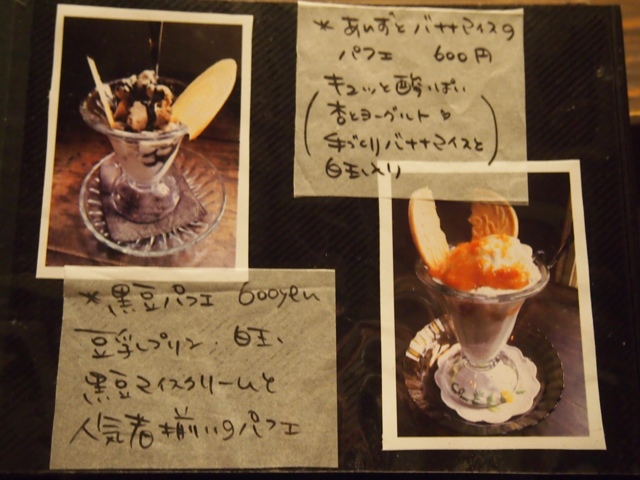 *あんずとバナナアイスの
パフェ 600円
キュッと酸っぱい
杏とヨーグルト
手づくりバナナアイスと
白玉入り
*黒豆パフェ 600yen
豆乳プリン、白玉、
黒豆アイスクリームと
人気者揃いのパフェ